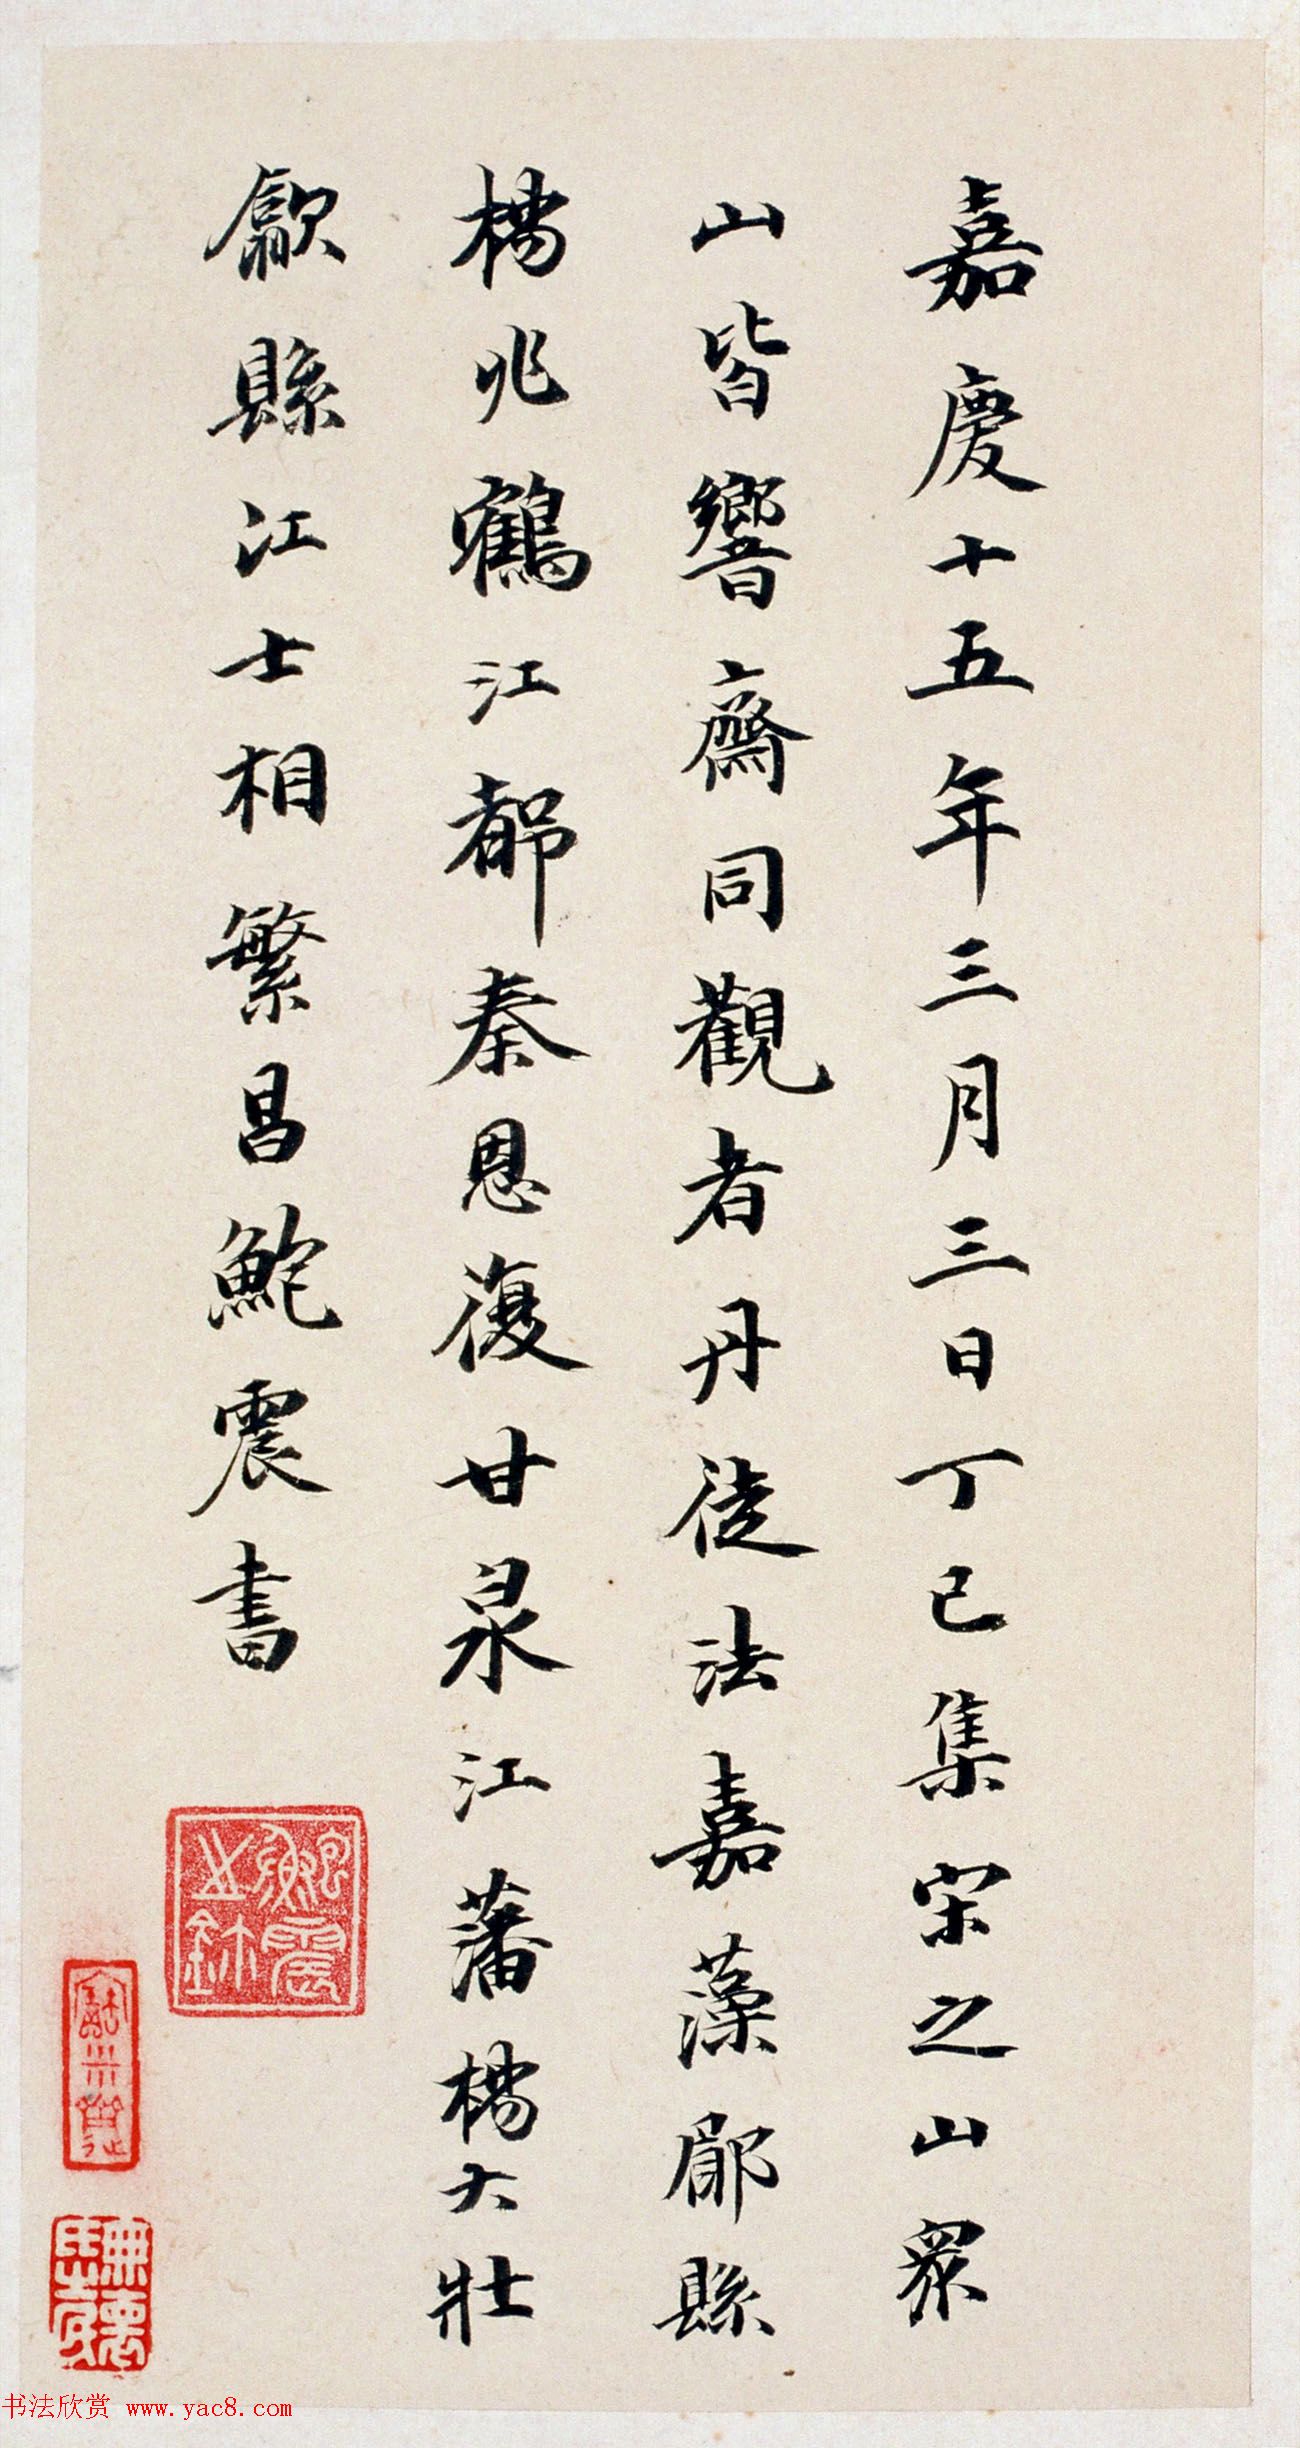 嘉慶十五年三月三日丁巳集宋之山衆
山皆響齋同觀者丹徒法嘉蓀鄜縣
楊兆鶴江都秦恩復甘泉江藩楊大壯
歙縣江士相繁昌鮑震書
無懷
書法欣赏 www.yac8.com